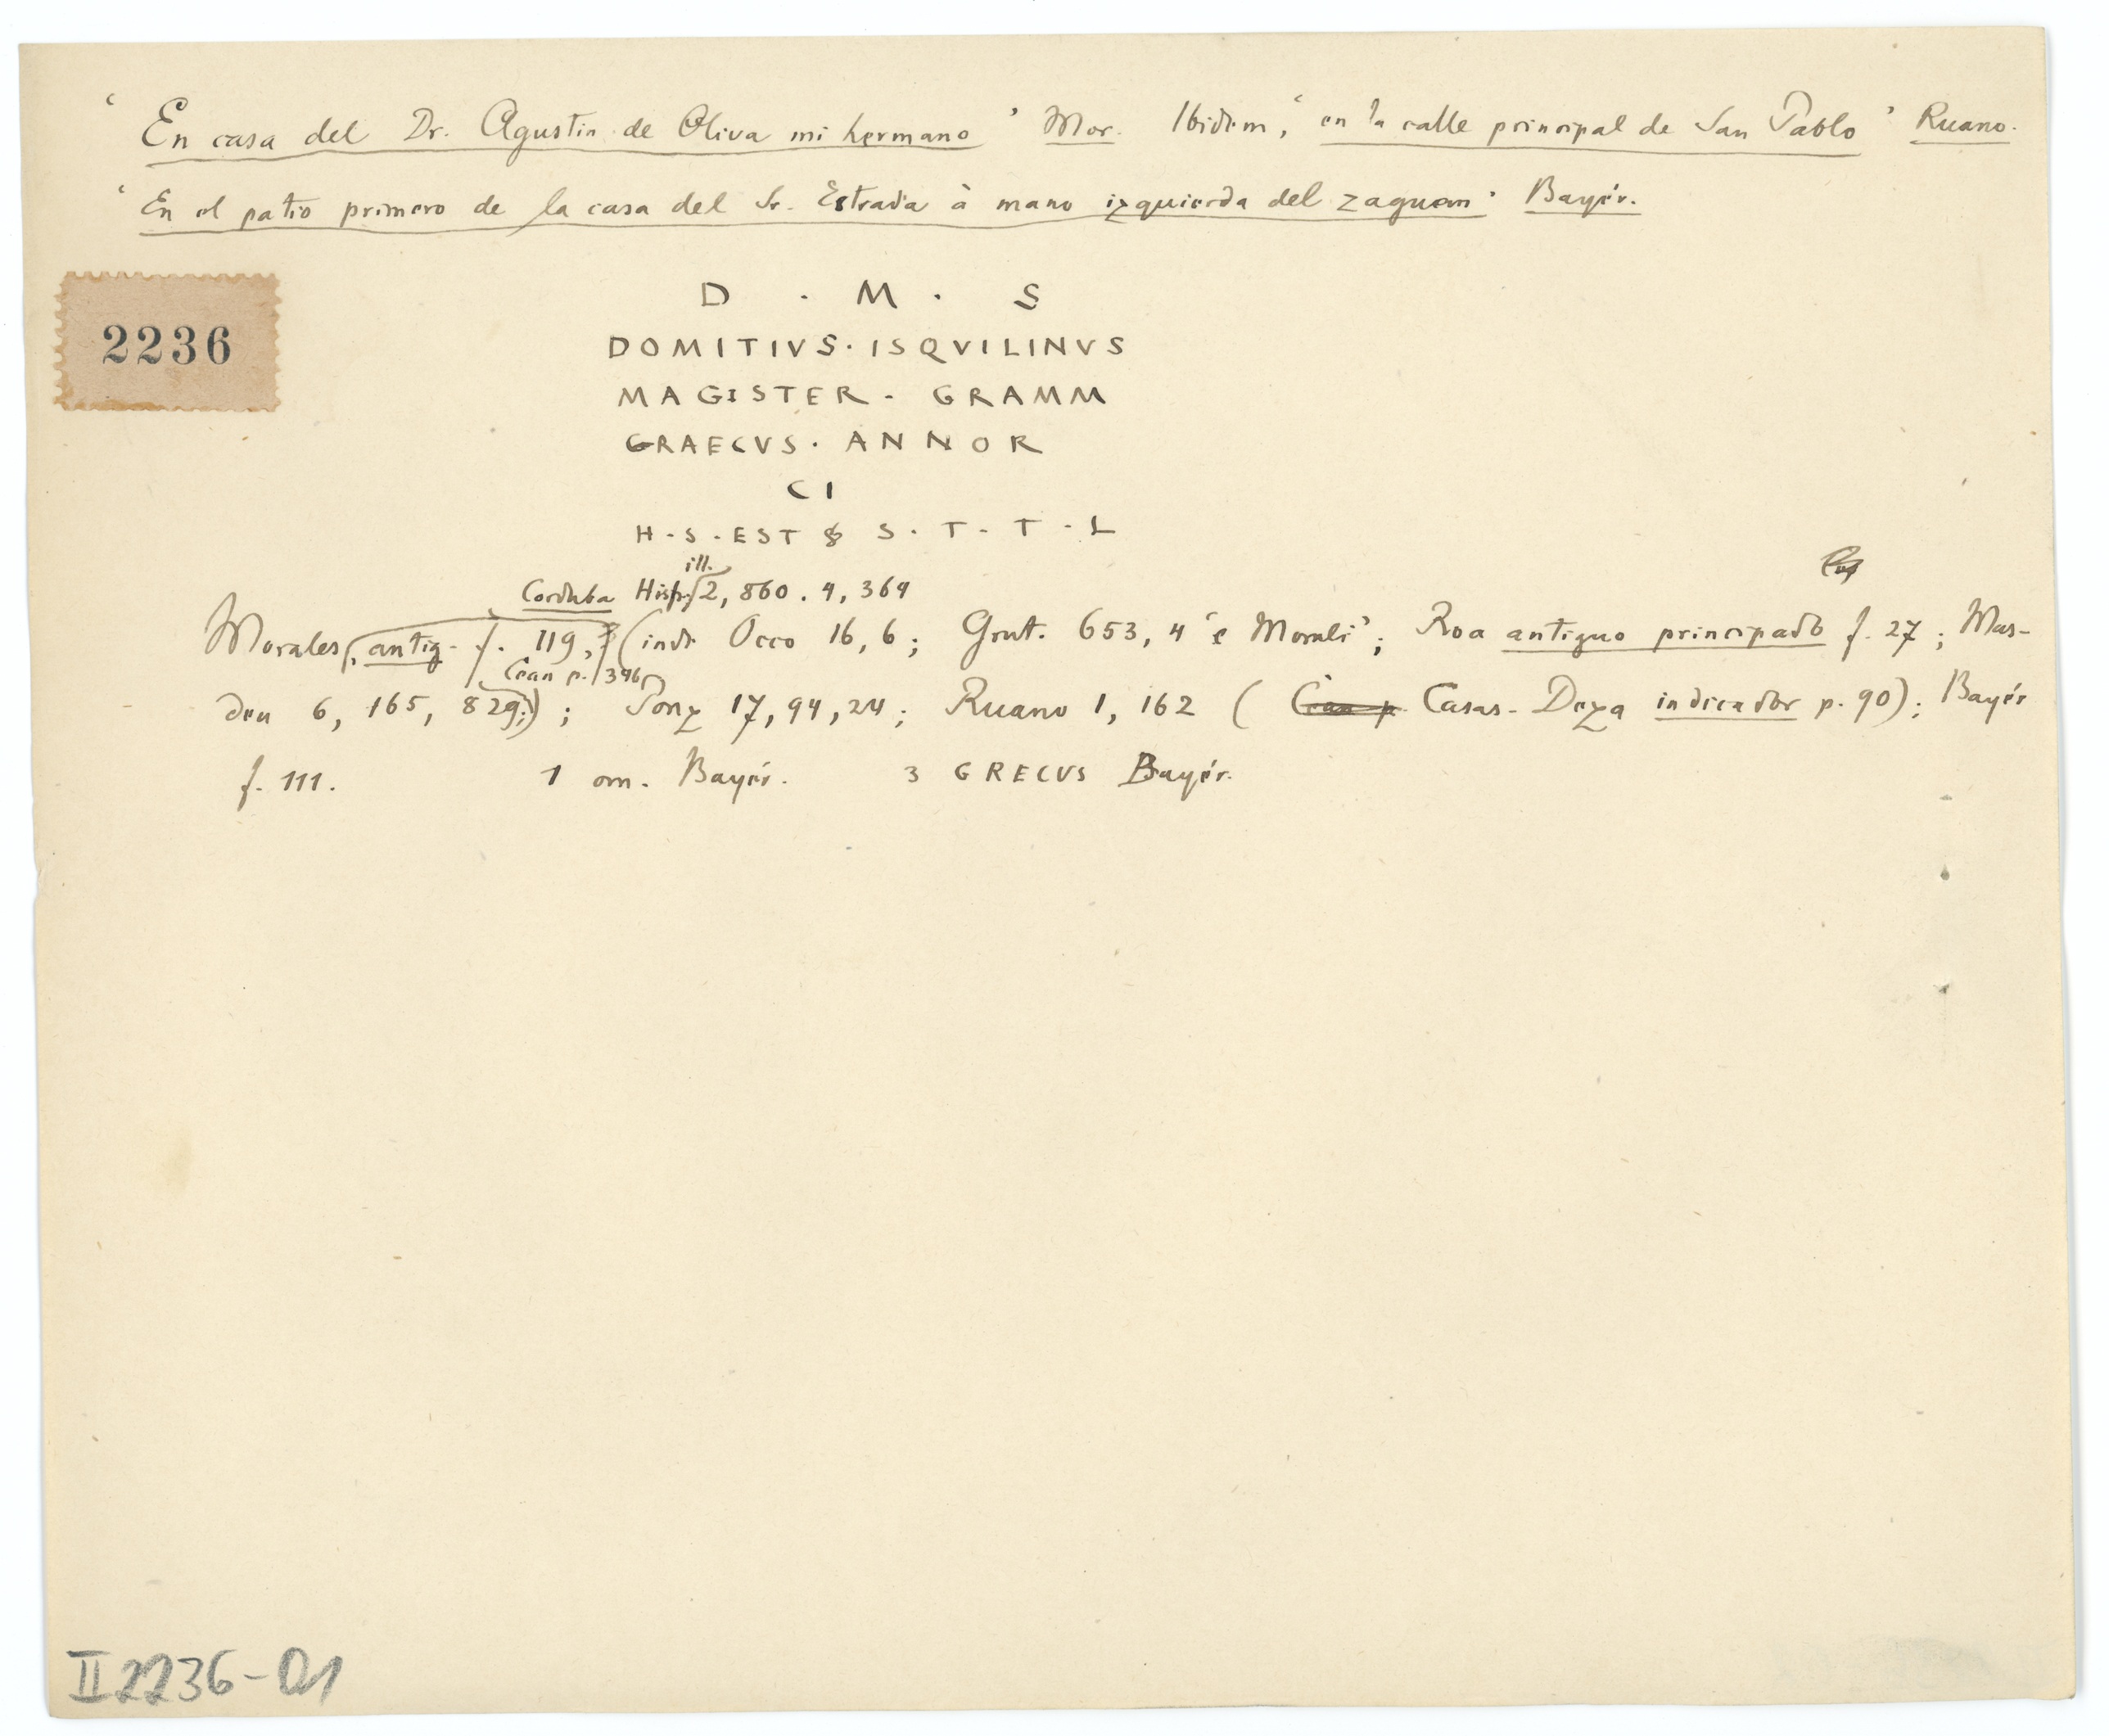 ‘ En casa del Dr. Agustin de Oliva mi hermano ’ Mor. Ibidem, ‘ en la calle principal de San Pablo ’ Ruano.
‘ En el patio primero de la casa del Sr. Estrada à mano izquierda del zaguan ’ Bayér.
2236
D · M · S
DOMITIVS · ISQVILINVS
MAGISTER · GRAMM
GRAECVS · ANNOR
CI
H · S · EST S · T · T · L
ill.
Corduba Hisp. 2, 860. 4, 364
Morales, antig. f. 119, (inde Occo 16, 6; Grut. 653, 4 ‘e Morali’; Roa antiguo principado f. 27; Mas-
Cean p. 396
deu 6, 165, 829;); Ponz 17, 94, 24; Ruano 1, 162 ( Cean p Casas-Deza indicador p. 90); Bayér
f. 111. 1 om. Bayér. 3 GRECVS Bayér.
II 2236-01